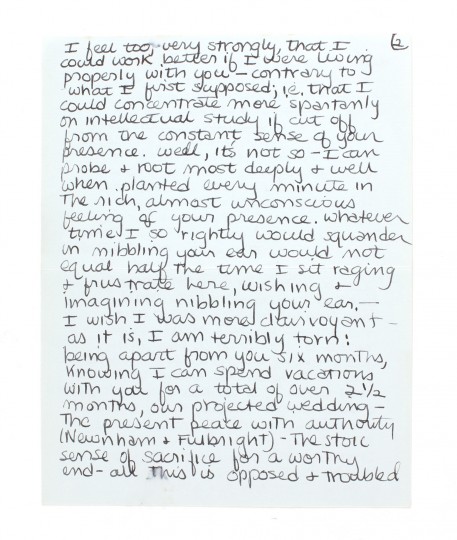 2
I feel too, very strongly, that I
could work better if I were living
properly with you — contrary to
what I first supposed; i.e. that I
could concentrate more spartanly
on intellectual study if cut off
from the constant sense of your
presence. Well, it's not so — I can
probe & root most deeply & well
when planted every minute in
the rich, almost unconscious
feeling of your presence. Whatever
time I so rightly would squander
in nibbling your ear would not
equal half the time I sit raging
& frustrate here, wishing &
imagining nibbling your ear. —
I wish I was more clairvoyant —
as it is, I am terribly torn:
being apart from you six months,
knowing I can spend vacations
with you for a total of over 2 1/2
months, our projected wedding —
the present peace with authority
(Newnham & Fulbright) - the stoic
sense of sacrifice for a worthy
end - all this is opposed & troubled